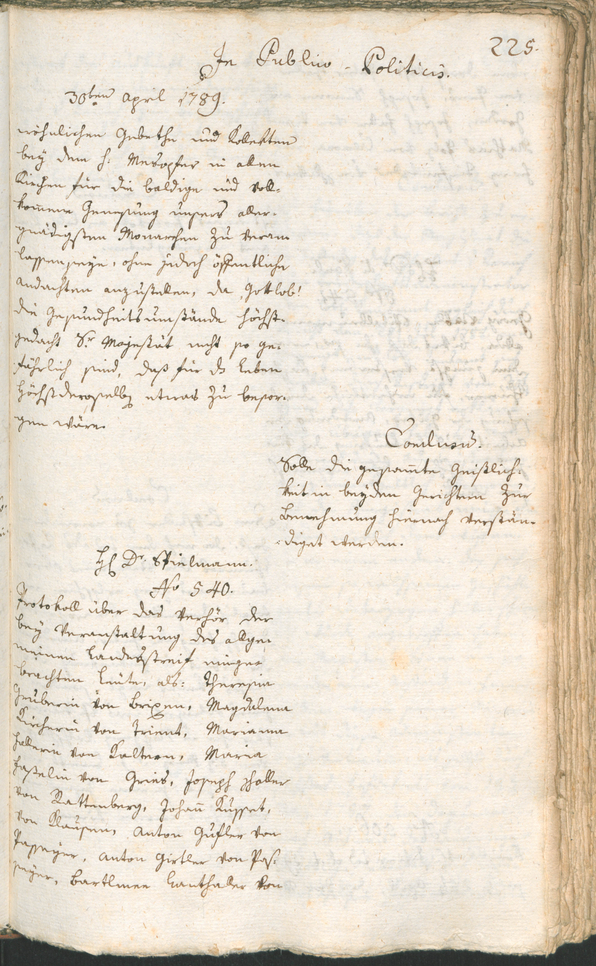 225.
In Publico-Politicis.
30ten April 1789.
wöhnlichen Gebethe und Kollekten
bey dem h. Mesopfer in allen
Kirchen für die baldige und voll-
kommene Genesung unsers aller-
gnädigsten Monarchen zu veran-
lassen seye, ohne jedoch öffentliche
Andachten anzustellen, da, Gottlob!
die Gesundheitsumstände höchst-
gedacht Sr. Majestät nicht so ge-
fährlich sind, daß für das Leben
Höchstderoselben etwas zu besor-
gen wäre.
Conclusum.
Solle die gesammte Geistlich-
keit in beyden Gerichtern zur
Benehmung hiernach verstän-
diget werden.
H Dr. Spielmann.
No 540.
Protokoll über das Verhör der
bey Veranstaltung des allge-
meinen Landesstreif einge-
brachten Leute, als: Theresia
Gruberin von Brixen, Magdalena
Kircherin von Trient, Mariana
Hallerin von Kaltern, Maria
von Gries, Joseph Haller
von Rattenberg, Johann Kusset,
von Klausen, Anton Gufler von
Passeyer, Anton Girtler von Pas-
seyer, Bartlmee Hanthaler von